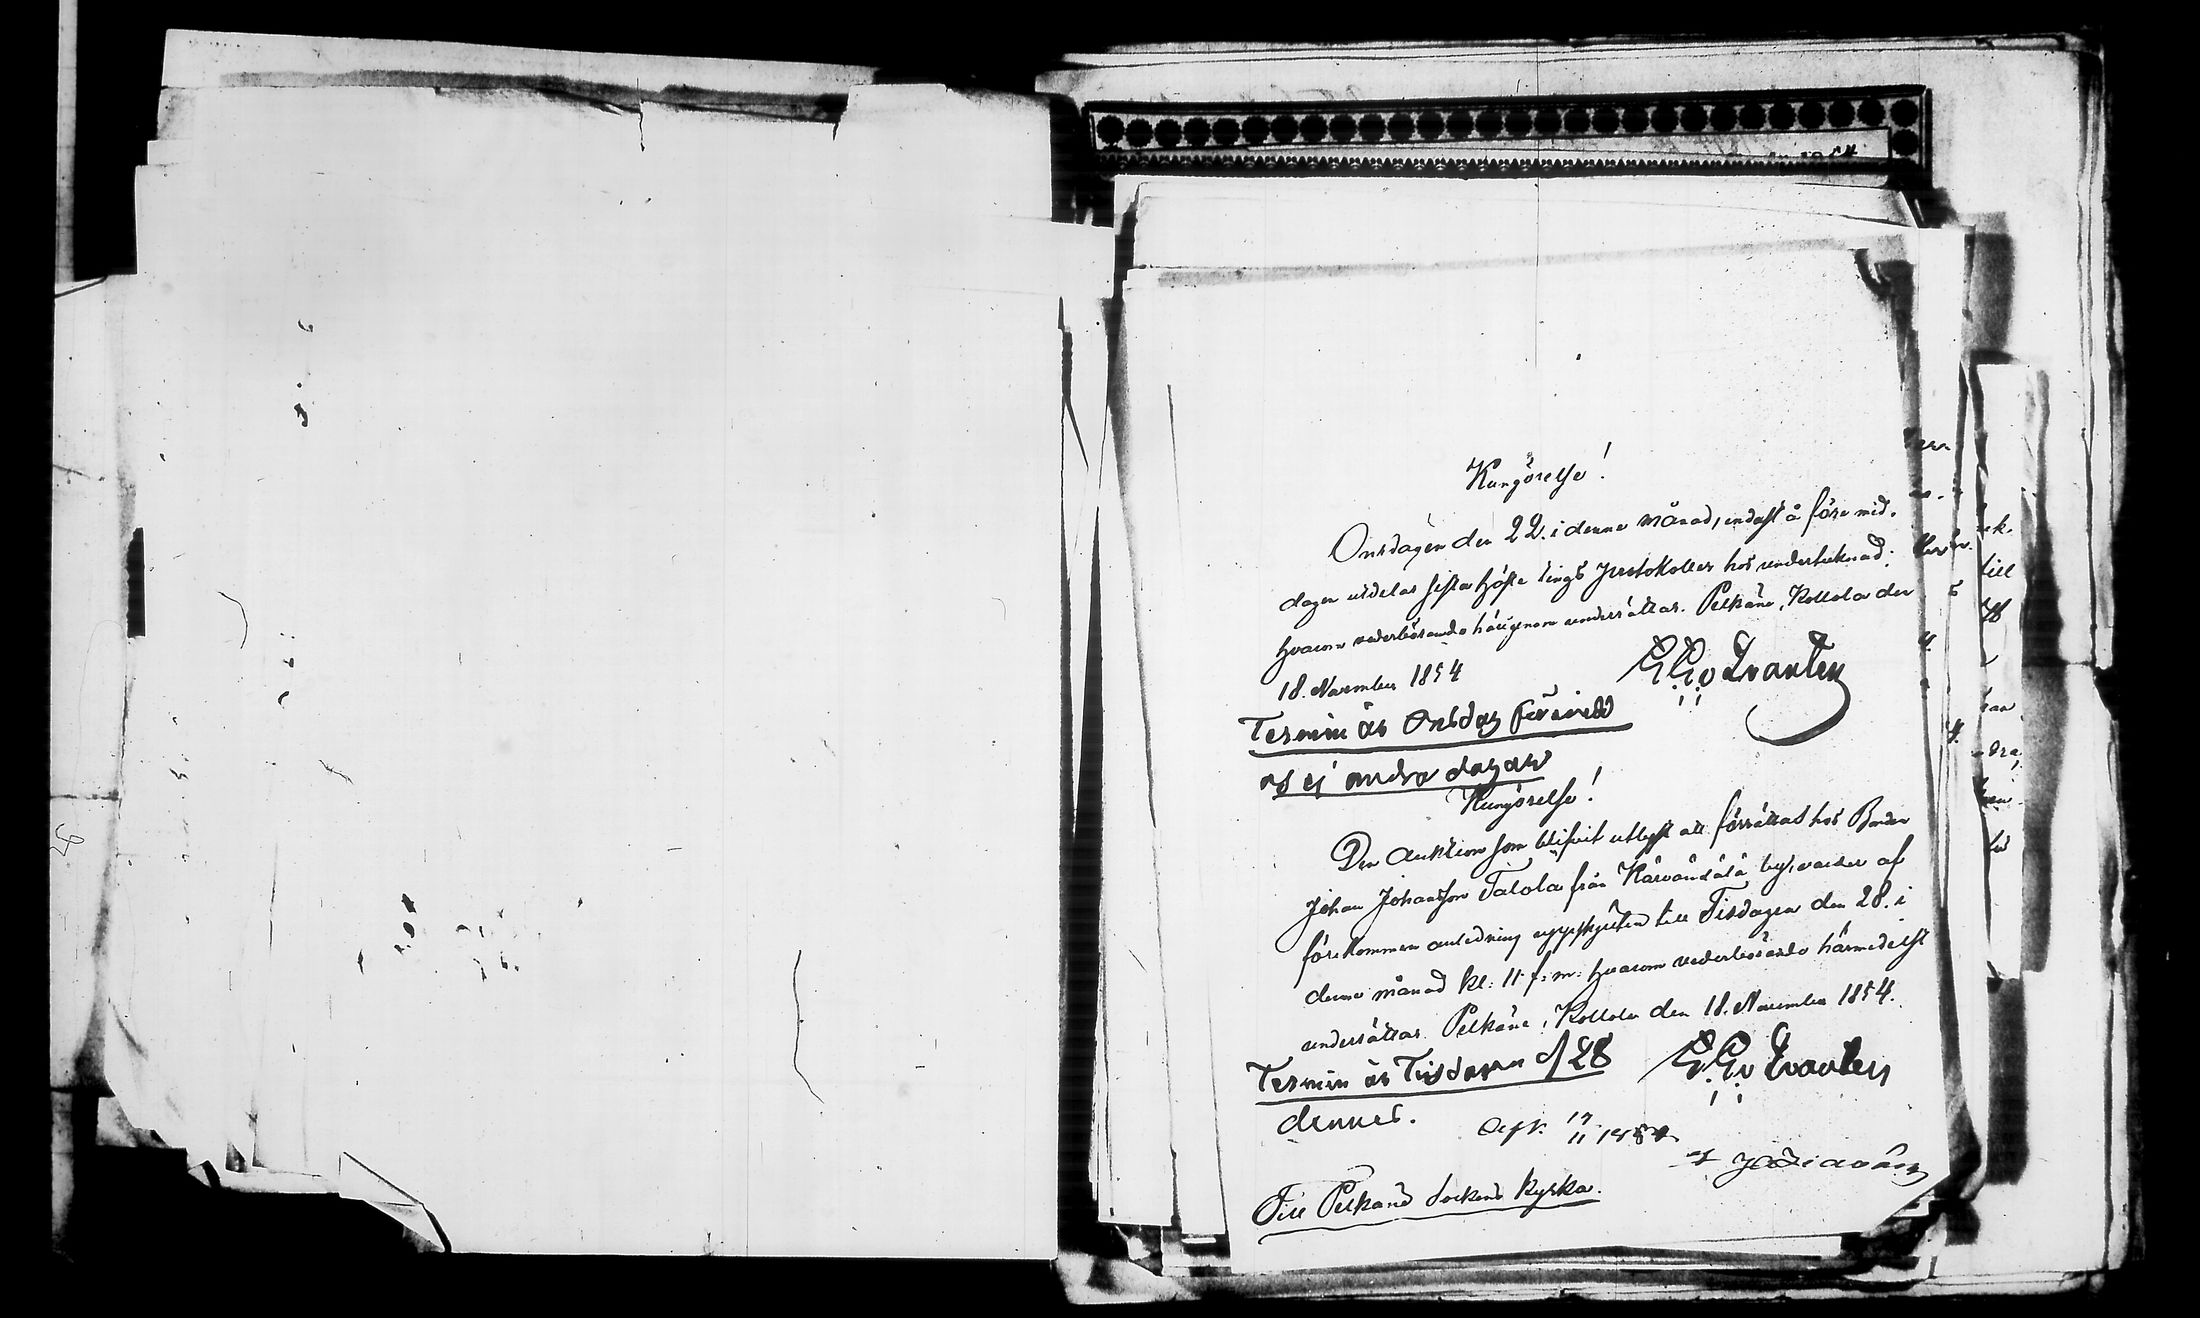 Kungörelse!
Onsdagen den 22. i denne månad, endast å före mid-
dagen utdelas sista höste tings protokoller hos undertecknad;
hvarom vederbörande härigenom underrättas. Pelkäne, Kollola den
18. November 1854
G. G. v Qvanten
Termin är Onsdag förmidd
og ej andra dagar
Kungörelse!
Den Auktion som blifvit utlyst att förrättas hos Bonden
Johan Johansson Talola från Kärvänsälä by, varder af
förekommen anledning uppskjuten till Tisdagen den 28. i
denne månad kl: 11 f: m: hvarom vederbörande härmedelst
underrättas. Pelkäne, Kollola den 18. November 1854.
Termin är Tisdagen d 28
G. G. v Qvanten
dennes.
17/11 1854
Till Pelkäne Sockens Kyrka.
till